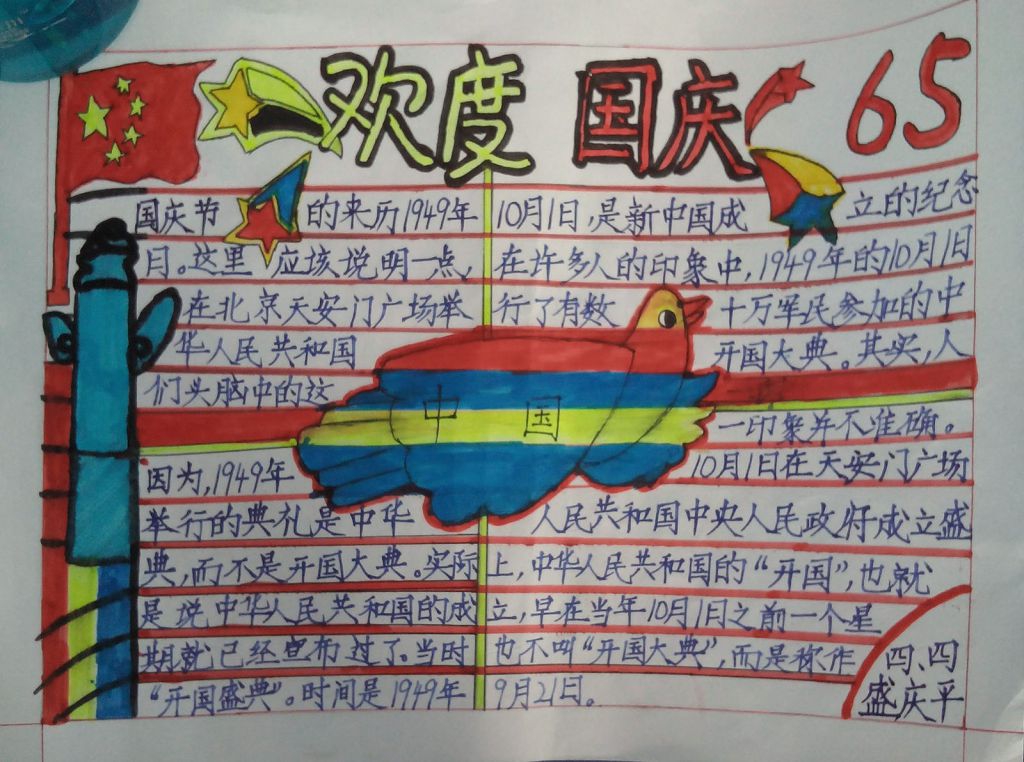 欢度 国庆 65
国庆节 的来历1949年 10月1日,是新中国成 立的纪念
日。这里 应该说明一点, 在许多人的印象中,1949年的10月1日
在北京天安门广场举 行了有数 十万军民参加的中
华人民共和国 开国大典。其实,人
们头脑中的这
中 国
一印象并不准确。
因为,1949年 10月1日在天安门广场
举行的典礼是中华 人民共和国中央人民政府成立盛
典,而不是开国大典。实际 上,中华人民共和国的“开国”,也就
是说中华人民共和国的成 立,早在当年10月1日之前一个星
期就已经宣布过了。当时 也不叫“开国大典”,而是称作
“开国盛典”。时间是1949年 9月21日。
四、四
盛庆平